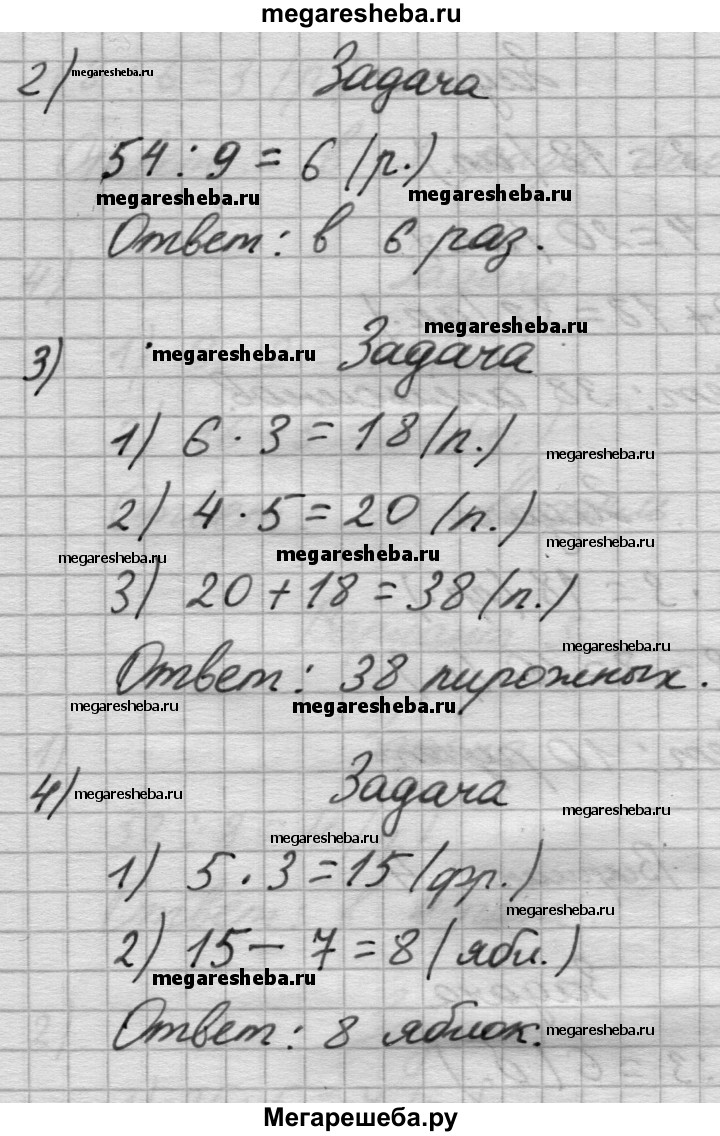 megaresheba.ru
2) megaresheba.ru Задача
54 : 9 = 6 (р.)
megaresheba.ru megaresheba.ru
Ответ: в 6 раз.
megaresheba.ru
3) megaresheba.ru Задача
1) 6 · 3 = 18 (п.)
megaresheba.ru
2) 4 · 5 = 20 (п.)
megaresheba.ru
megaresheba.ru megaresheba.ru
3) 20 + 18 = 38 (п.)
megaresheba.ru
Ответ: 38 пирожных.
megaresheba.ru megaresheba.ru
4) megaresheba.ru Задача
megaresheba.ru
megaresheba.ru
1) 5 · 3 = 15 (фр.)
megaresheba.ru
2) 15 - 7 = 8 (ябл.)
megaresheba.ru
Ответ: 8 яблок.
megaresheba.ru
Мегарешеба.ру